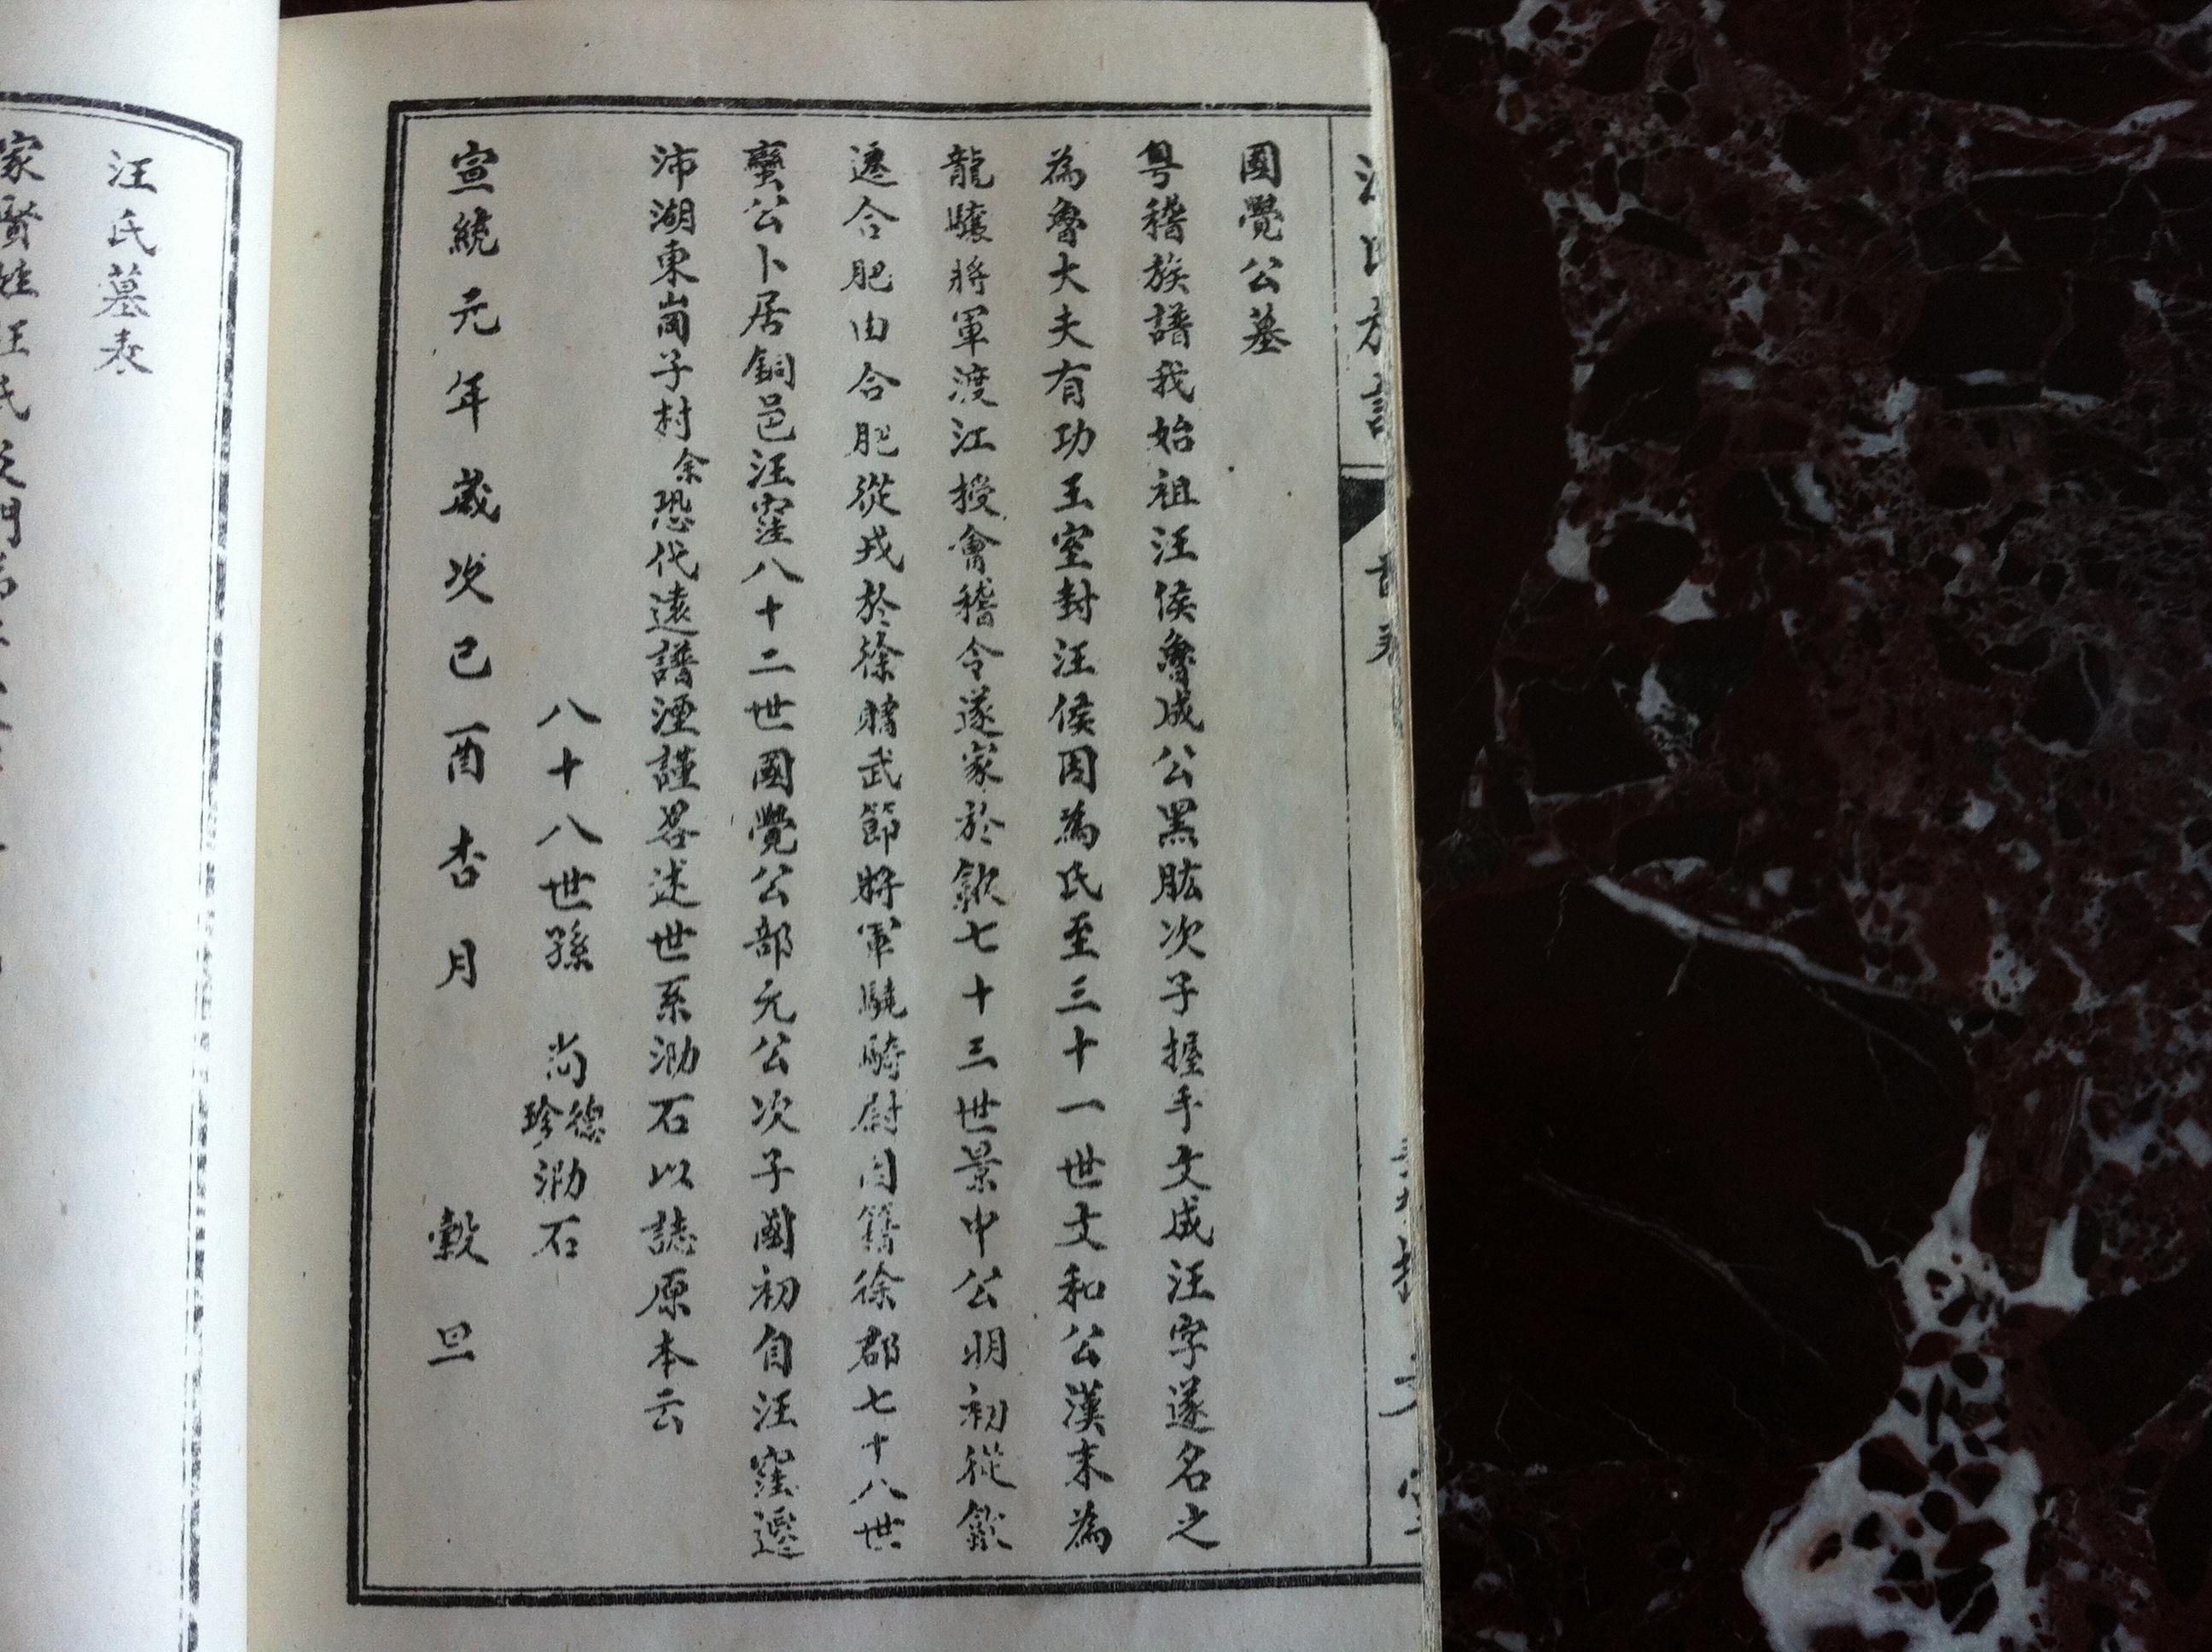 國覺公墓
粵稽族譜我始祖汪侯魯成公黑肱次子握手文成汪字遂名之
為魯大夫有功王室封汪侯因為氏至三十一世文和公漢末為
龍驤將軍渡江授會稽令遂家於歙七十三世景中公明初從歙
遷合肥由合肥從戎於徐膺武節將軍驍騎尉因籍徐郡七十八世
蠻公卜居銅邑汪窪八十二世國覺公部元公次子國初自汪窪遷
沛湖東崗子村余恐代遠譜湮謹畧述世系泐石以誌原本云
八十八世孫 尚德珍泐石
宣統元年歲次己酉杏月 穀旦
汪氏墓表